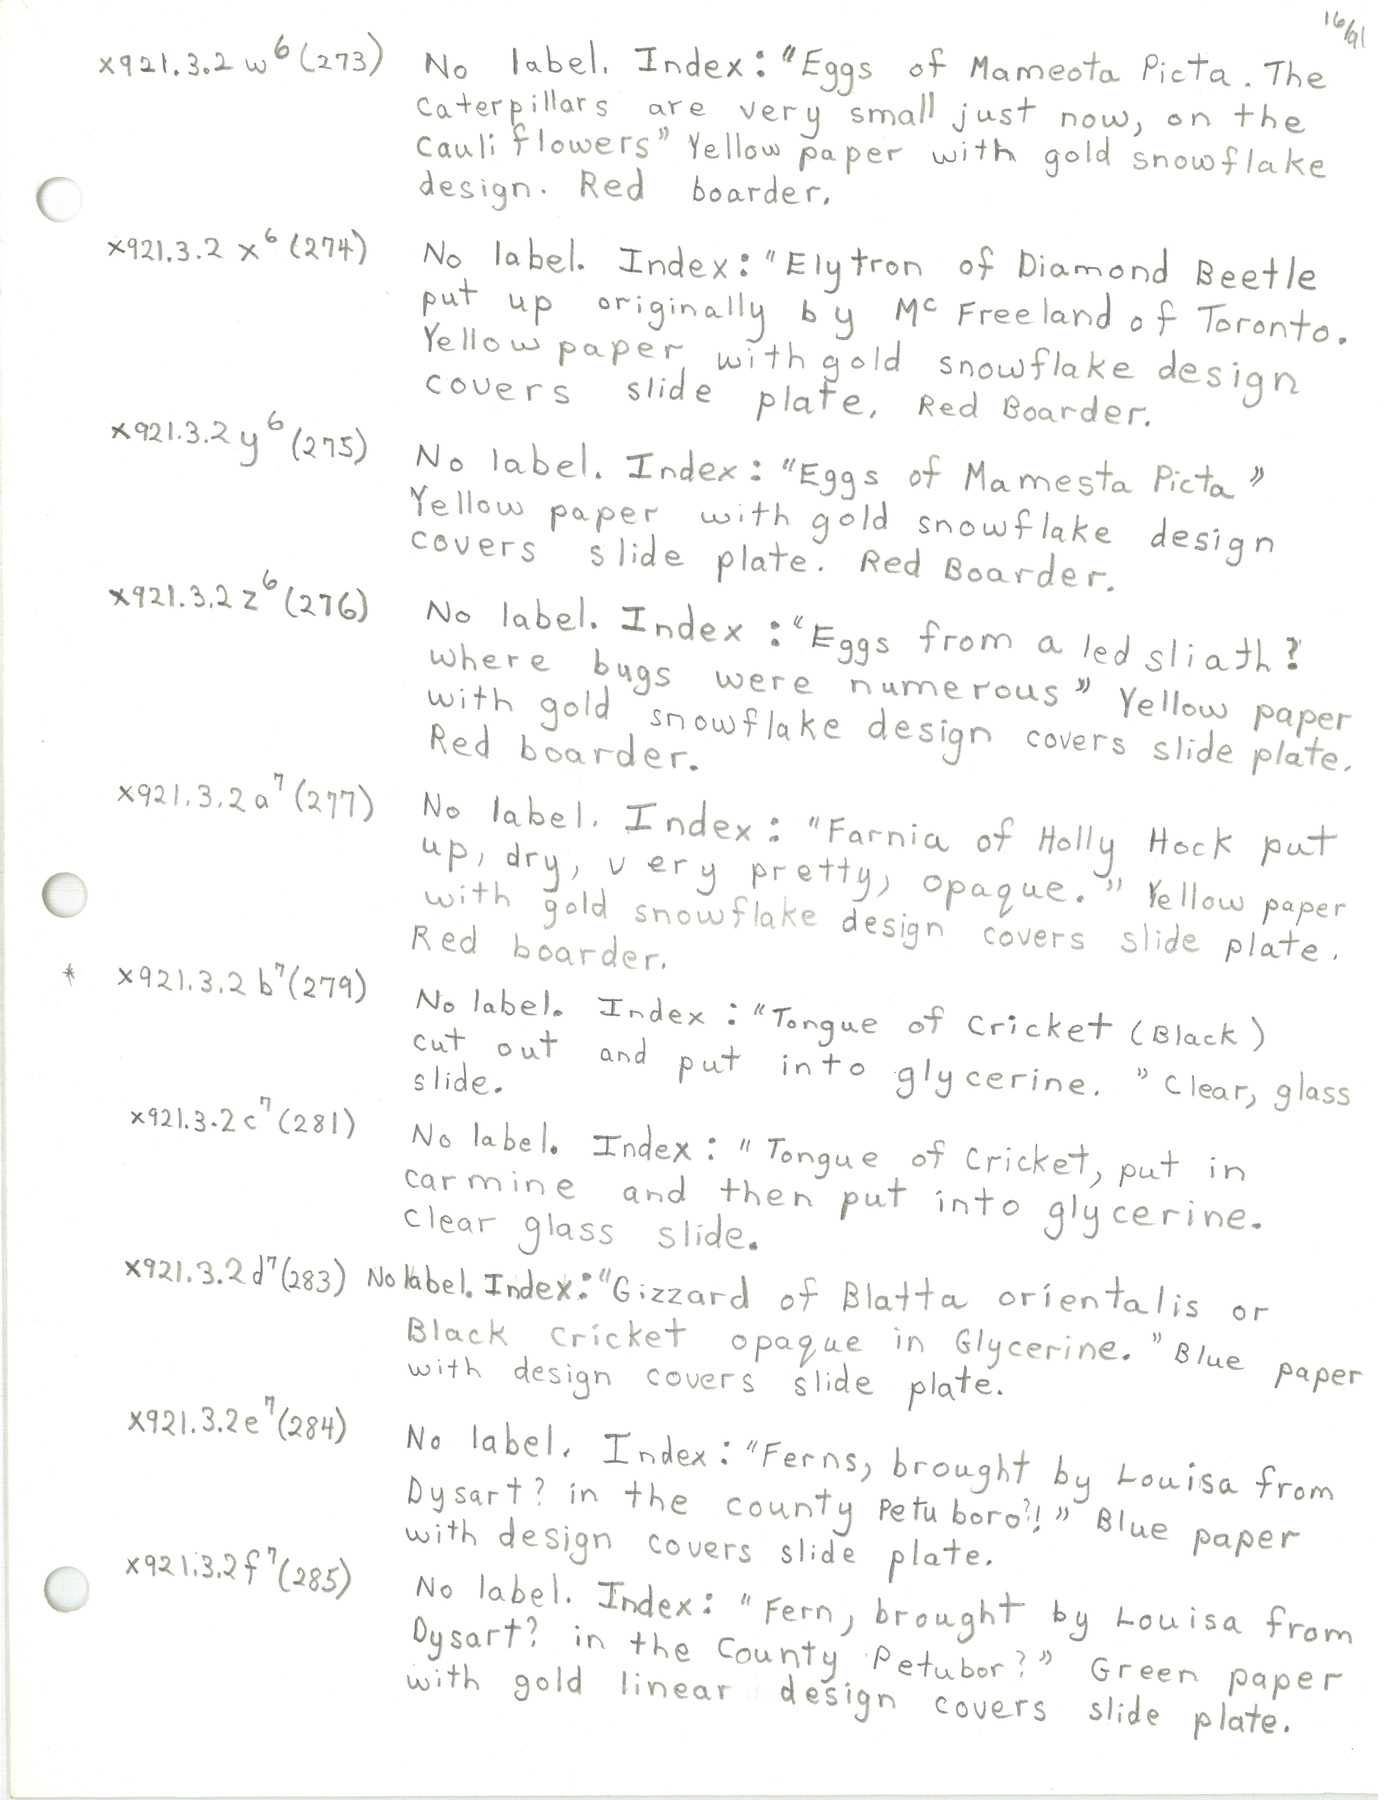 16/91
x921.3.2 w⁶ (273) No label. Index: "Eggs of Mameota Picta. The
caterpillars are very small just now, on the
cauliflowers" Yellow paper with gold snowflake
design. Red boarder.
x921.3.2 x⁶ (274) No label. Index: "Elytron of Diamond Beetle
put up originally by Mc Freeland of Toronto.
Yellow paper with gold snowflake design
covers slide plate. Red Boarder.
x921.3.2 y⁶ (275) No label. Index: "Eggs of Mamesta Picta"
Yellow paper with gold snowflake design
covers slide plate. Red Boarder.
x921.3.2 z⁶ (276) No label. Index: "Eggs from a led sliath?
where bugs were numerous" Yellow paper
with gold snowflake design covers slide plate.
Red boarder.
x921.3.2 a⁷ (277) No label. Index: "Farnia of Holly Hock put
up, dry, very pretty, opaque." Yellow paper
with gold snowflake design covers slide plate.
Red boarder.
* x921.3.2 b⁷ (279) No label. Index: "Tongue of Cricket (Black)
cut out and put into glycerine." Clear, glass
slide.
x921.3.2 c⁷ (281) No label. Index: "Tongue of Cricket, put in
carmine and then put into glycerine.
Clear glass slide.
x921.3.2 d⁷ (283) No label. Index: "Gizzard of Blatta orientalis or
Black cricket opaque in Glycerine." Blue paper
with design covers slide plate.
x921.3.2 e⁷ (284) No label. Index: "Ferns, brought by Louisa from
Dysart? in the county Petuboro?!" Blue paper
with design covers slide plate.
x921.3.2 f⁷ (285) No label. Index: "Fern, brought by Louisa from
Dysart? in the County Petubor?" Green paper
with gold linear design covers slide plate.